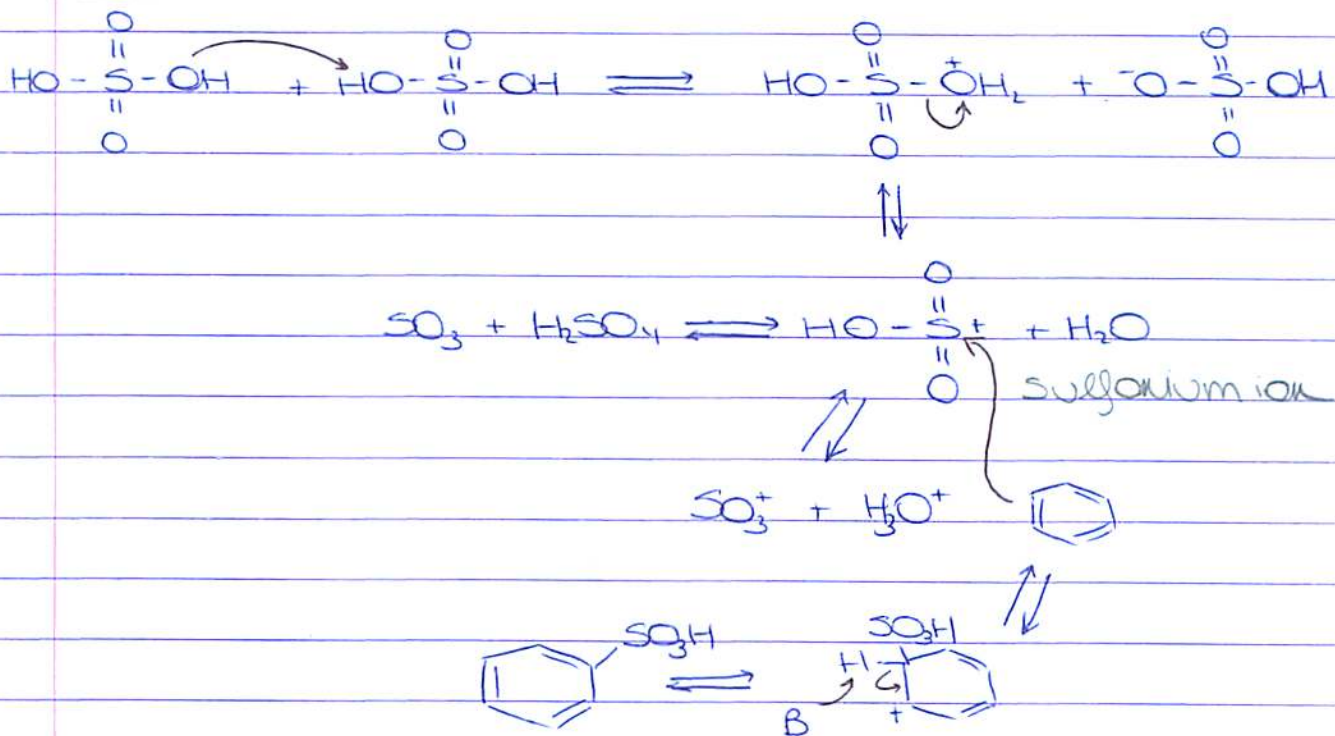 O O O O
HO - S - OH + HO - S - OH ⇌ HO - S - O⁺H₂ + ⁻O - S - OH
O O O O
O
SO₃ + H₂SO₄ ⇌ HO - S⁺ + H₂O
O sulfonium ion
SO₃⁺ + H₃O⁺
SO₃H SO₃H
⇌ H
B +